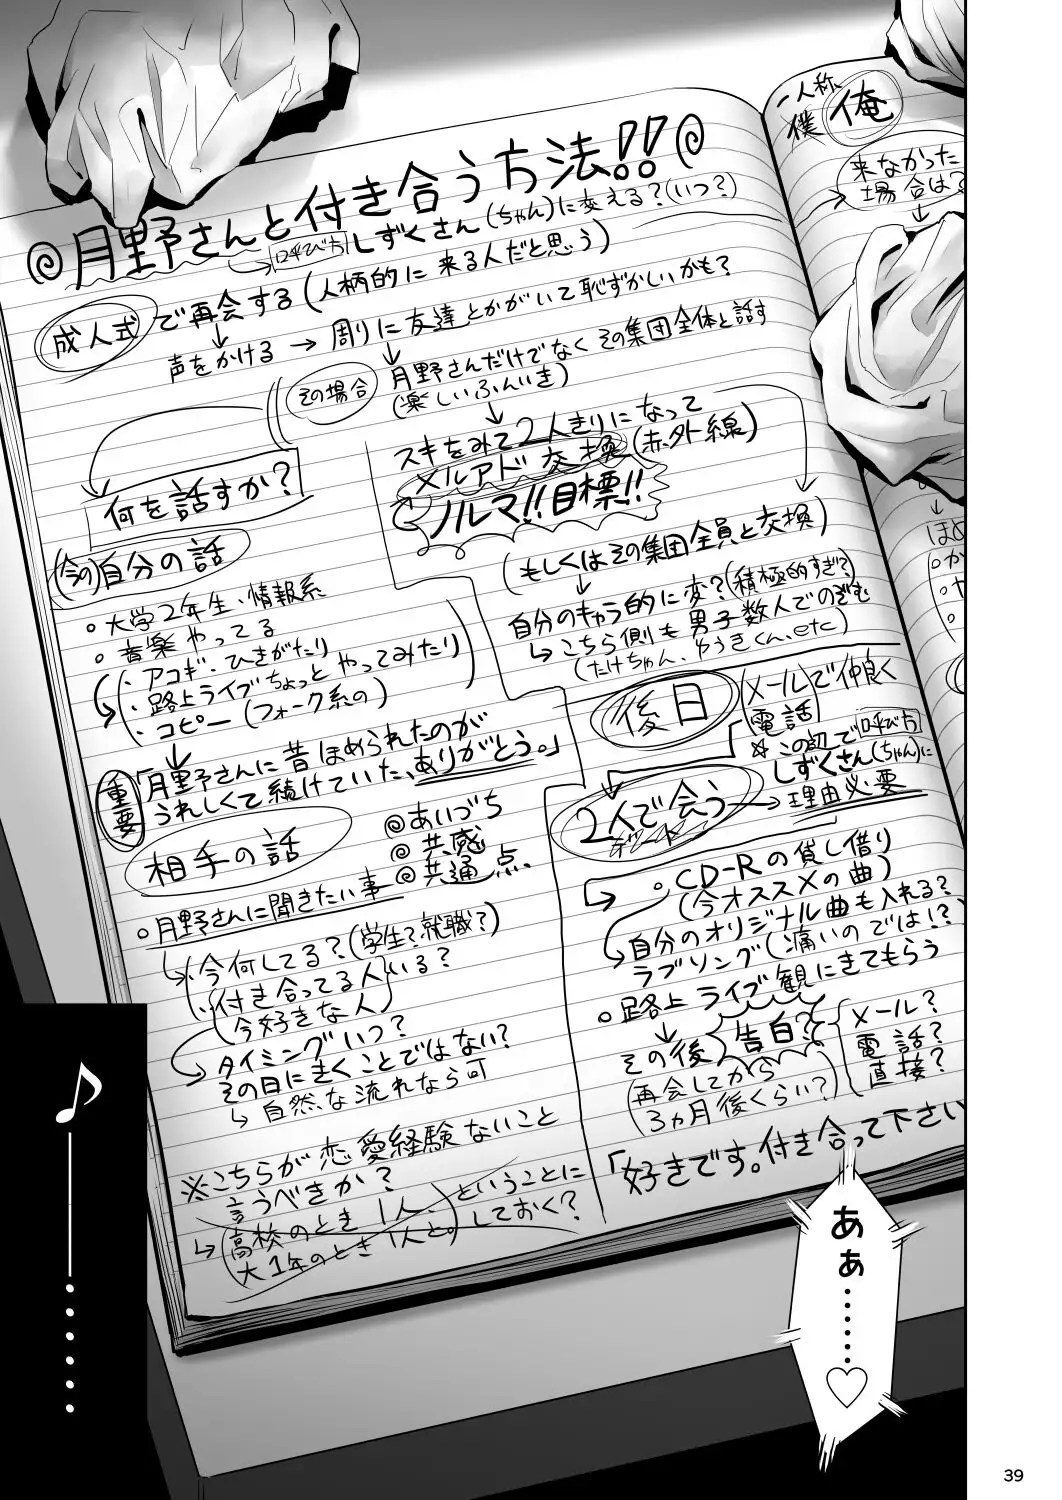 ◎月野さんと付き合う方法!!◎
呼び方 しずくさん(ちゃん)に変える?(いつ?)
成人式で再会する(人柄的に来る人だと思う)
声をかける→周りに友達とかがいて恥ずかしいかも?
その場合
月野さんだけでなくその集団全体と話す
(楽しいふんいき)
スキをみて2人きりになって
メルアド交換(赤外線)
ノルマ!!目標!!
(もしくはその集団全員と交換)
自分のキャラ的に変?(積極的すぎ?)
こちら側も男子数人でのぞむ
(たけちゃん、ゆうきくん、etc)
何を話すか?
(今の)自分の話
○大学2年生、情報系
○音楽やってる
・アコギ、ひきがたり
・路上ライブちょっとやってみたり
・コピー(フォーク系の)
重要
「月野さんに昔ほめられたのが
うれしくて続けていた、ありがとう。」
相手の話
◎あいづち
◎共感
◎共通点
○月野さんに聞きたい事
・今何してる?(学生?就職?)
・付き合ってる人いる?
(今好きな人)
タイミングいつ?
その日にきくことではない?
自然な流れなら可
※こちらが恋愛経験ないこと
言うべきか?
高校のとき1人、
大1年のとき1人と。
ということに
しておく?
後日
メールで仲良く
電話
☆この辺で呼び方
しずくさん(ちゃん)に
理由必要
2人で会う
デート
○CD-Rの貸し借り
(今オススメの曲)
自分のオリジナル曲も入れる?
ラブソング(痛いのでは!?)
○路上ライブ観にきてもらう
その後告白?
メール?
電話?
直接?
(再会してから
3ヵ月後くらい?)
「好きです。付き合って下さい
一人称
僕 俺
来なかった
場合は?
ほめ
♪――――………
あぁ……♡
39